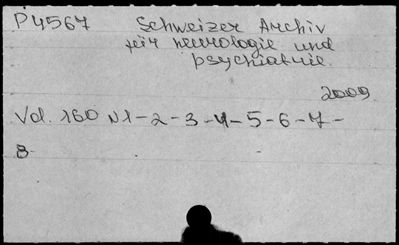 P4567 Schweizer Archiv
für neurologie und
psychiatrie.
2009
Vol. 160 N1-2-3-4-5-6-7-
8-